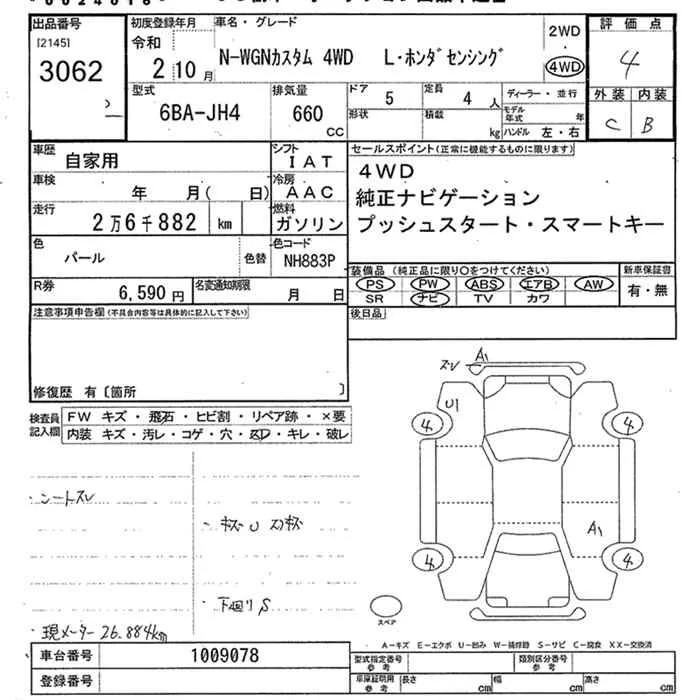 出品番号
[2145]
3062
初度登録年月
令和
2年10月
車名・グレード
N-WGNカスタム 4WD L・ホンダセンシング
2WD
4WD
評価点
4
外装 内装
C B
型式
6BA-JH4
排気量
660
CC
ドア
5
定員
4 人
形状
積載
kg
ディーラー・並行
モデル年式 年
ハンドル 左・右
車歴
自家用
シフト
IAT
車検
年 月( 日)
冷房
AAC
走行
2万6千882 km
燃料
ガソリン
色
パール
色替
色コード
NH883P
R券
6,590円
名変通知期限
月 日
セールスポイント(正常に機能するものに限ります)
4WD
純正ナビゲーション
プッシュスタート・スマートキー
装備品(純正品に限り○をつけてください)
PS PW ABS エアB AW
SR ナビ TV カワ
新車保証書
有・無
注意事項申告欄(不具合内容等は具体的に記入して下さい)
後日品
修復歴 有〔箇所 〕
検査員記入欄
FW キズ・飛石・ヒビ割・リペア跡・×要
内装 キズ・汚レ・コゲ・穴・スレ・キレ・破レ
シートスレ
キズU スリキズ
下廻りS
現メーター26.884km
スレ A1
U1
4 4
A1
4 4
スペア
A-キズ E-エクボ U-凹み W-補修跡 S-サビ C-腐食 XX-交換済
車台番号
1009078
登録番号
型式指定番号
参考
類別区分番号
参考
車庫証明用
参考
長さ cm 幅 cm 高さ cm